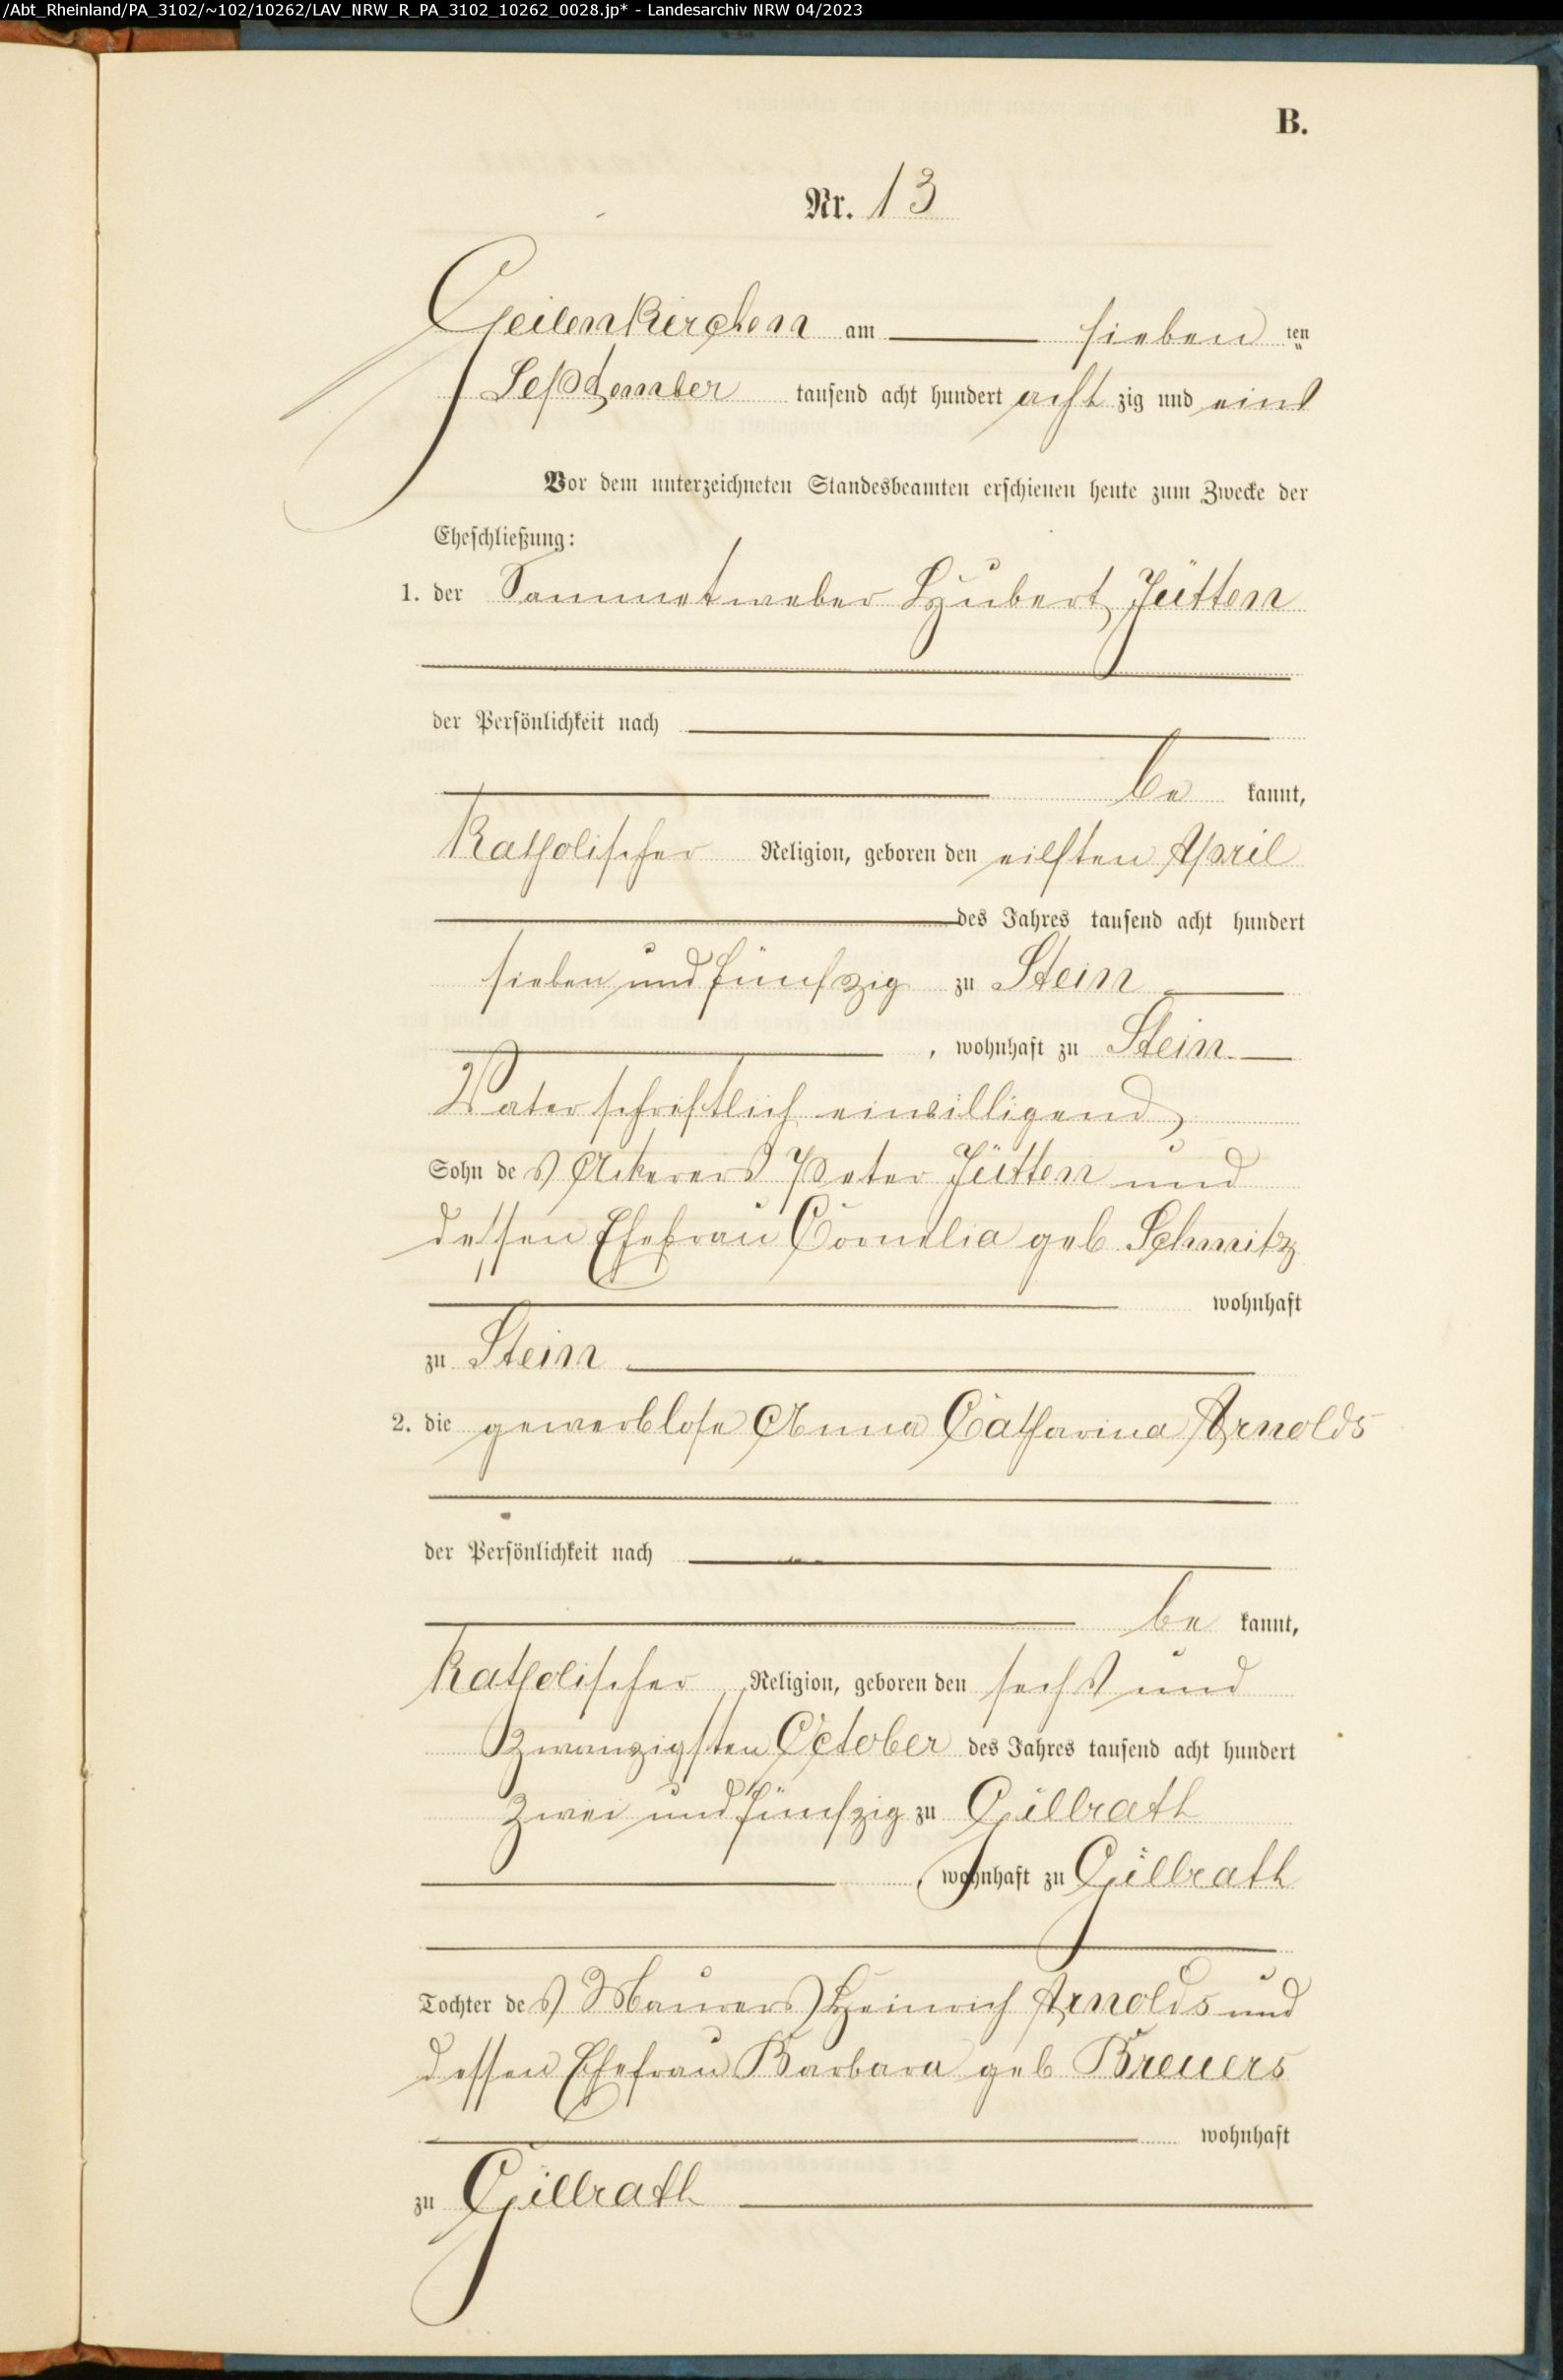 /Abt_Rheinland/PA_3102/~102/10262/LAV_NRW_R_PA_3102_10262_0028.jp* - Landesarchiv NRW 04/2023
B.
Nr. 13
Geilenkirchen am sieben ten
September tausend acht hundert acht zig und eins
Vor dem unterzeichneten Standesbeamten erschienen heute zum Zwecke der
Eheschließung:
1. der Sammetweber Hubert Jütten
der Persönlichkeit nach
be kannt,
katholischer Religion, geboren den eilften April
des Jahres tausend acht hundert
sieben und fünfzig zu Stein
, wohnhaft zu Stein
Vater schriftlich einwilligend,
Sohn des Ackerers Peter Jütten und
dessen Ehefrau Cornelia geb. Schmitz
wohnhaft
zu Stein
2. die gewerblose Anna Catharina Arnolds
der Persönlichkeit nach
be kannt,
katholischer Religion, geboren den sechs und
zwanzigsten October des Jahres tausend acht hundert
zwei und fünfzig zu Gillrath
, wohnhaft zu Gillrath
Tochter des Maurers Heinrich Arnolds und
dessen Ehefrau Barbara geb Breuers
wohnhaft
zu Gillrath